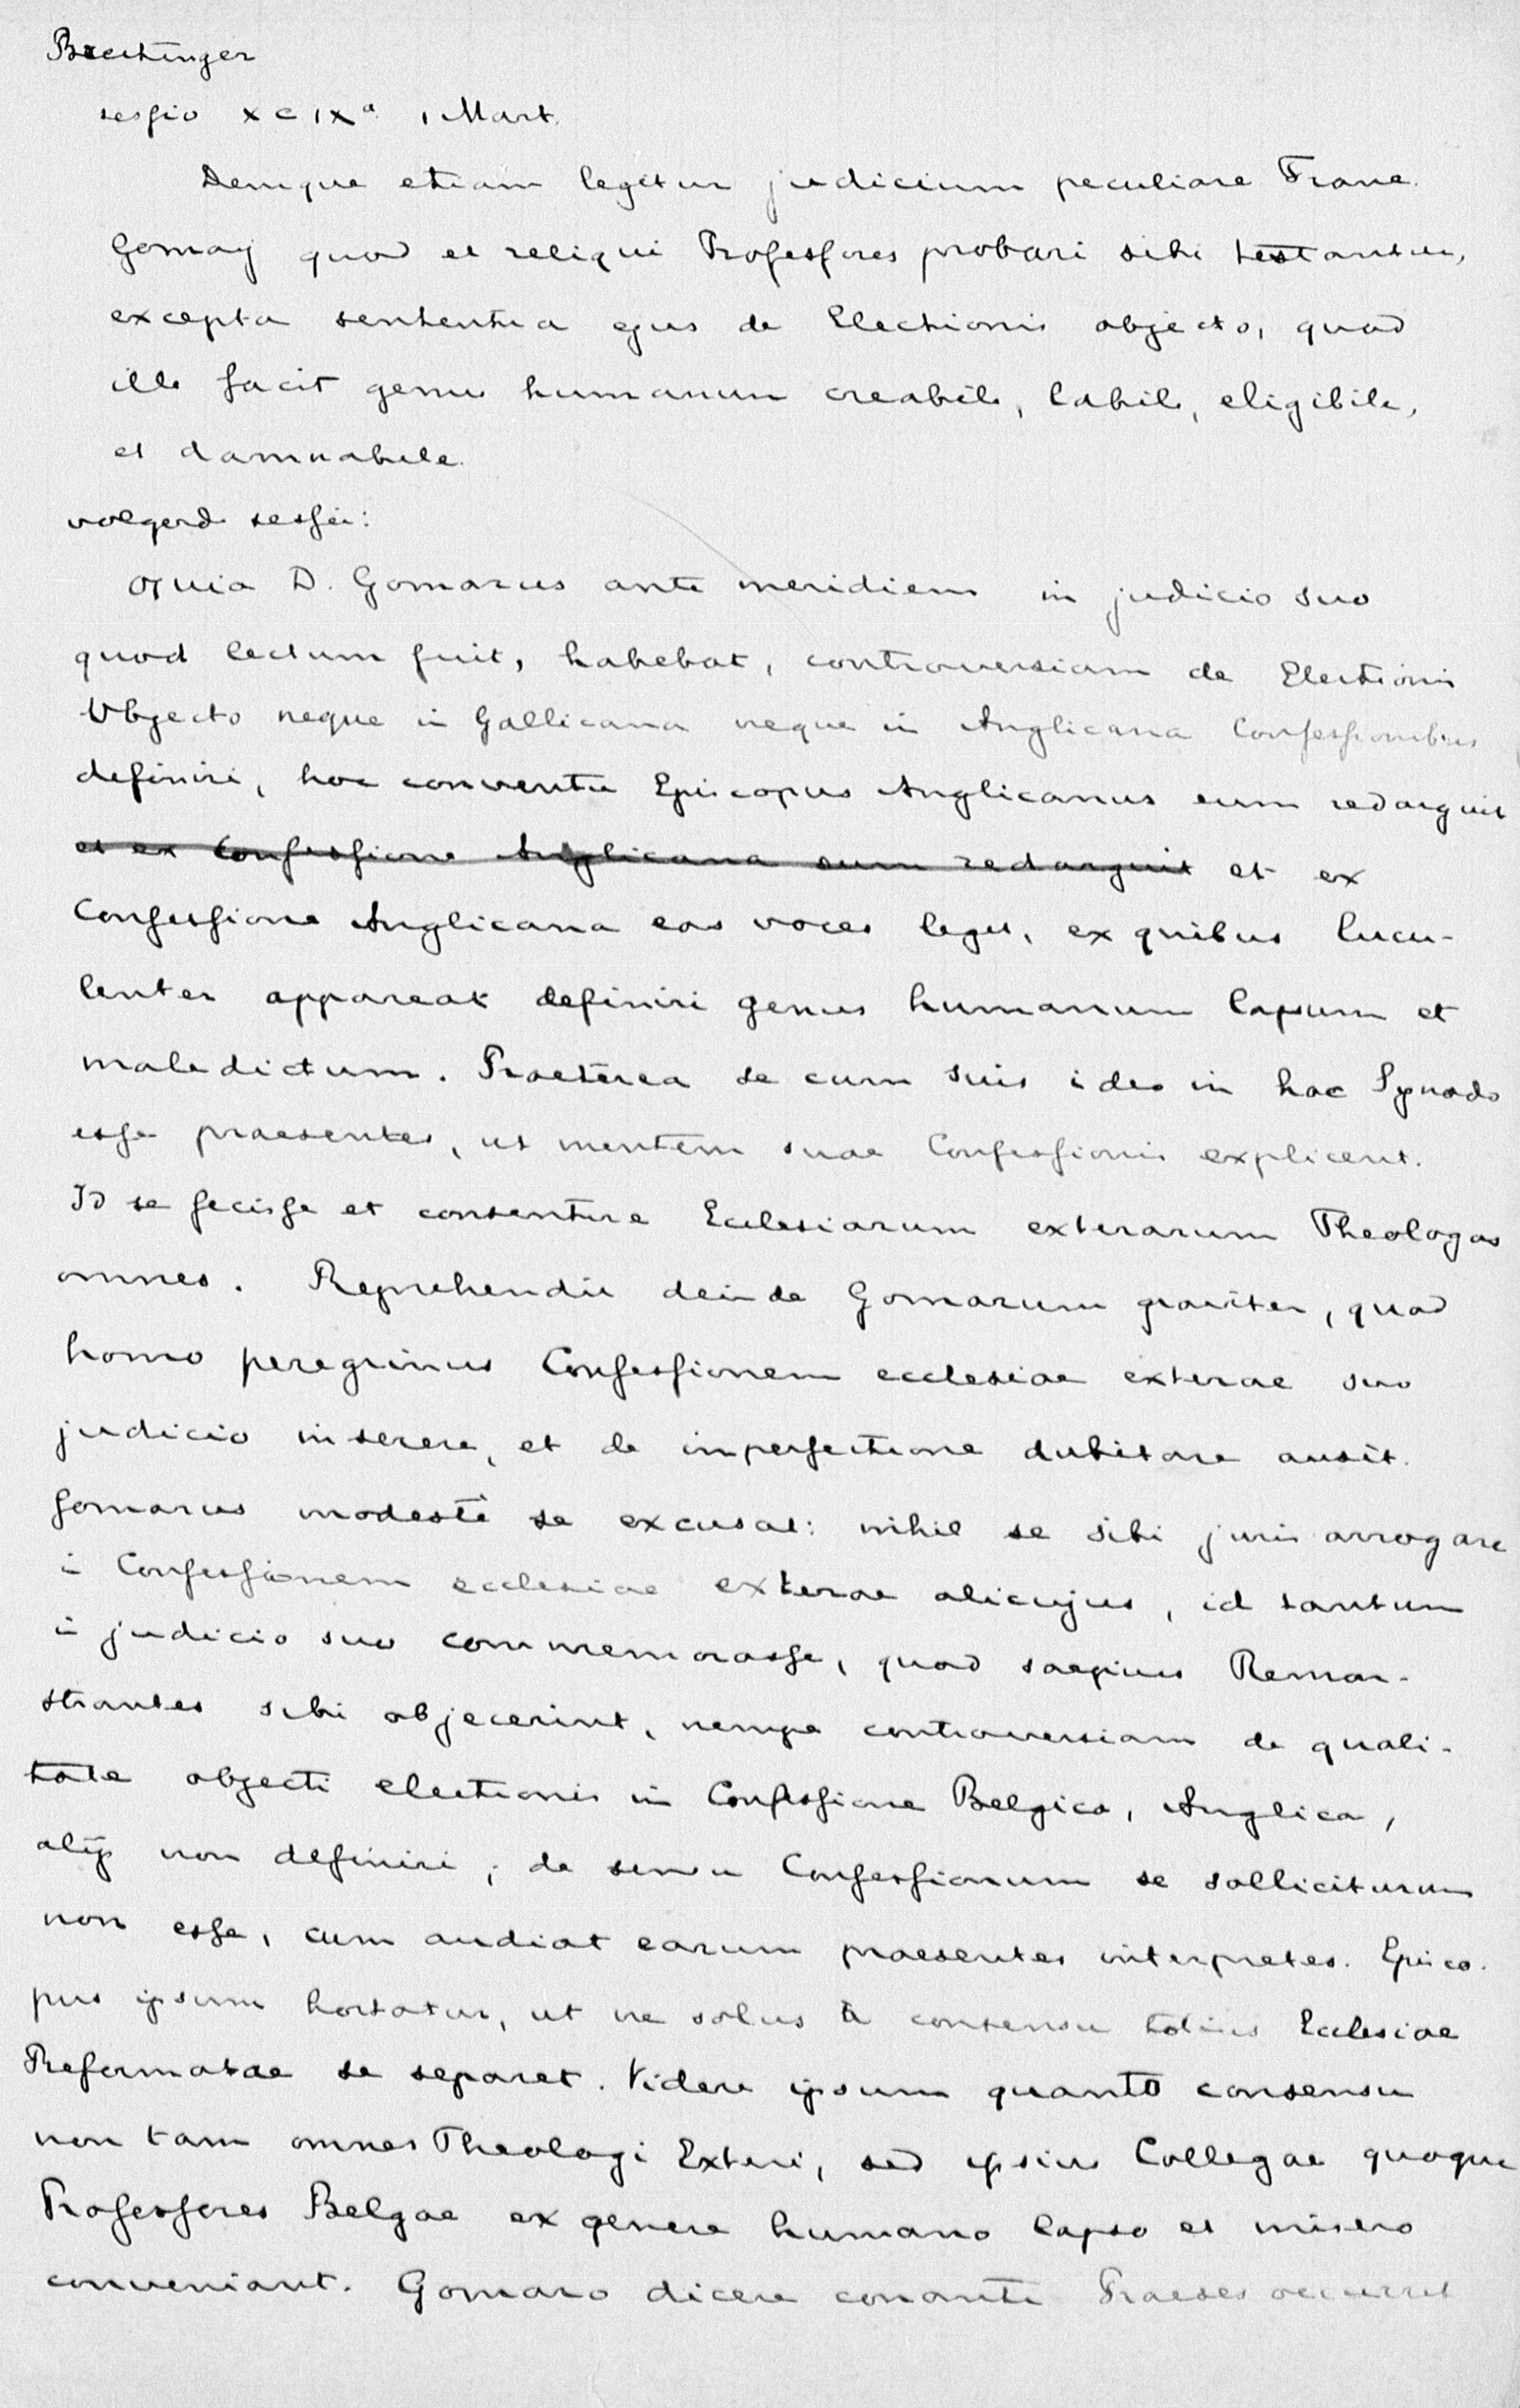 Breitinger
sessio XCIXa 1 Mart.
Denique etiam legitur judicium peculiare Franc.
Gomarj quod et reliqui Professores probari sibi testantur,
excepta sententia ejus de Electionis objecto, quod
ille facit genus humanum creabile, labile, eligibile,
et damnabile.
volgende sessie:
Quia D. Gomarus ante meridiem in judicio suo
quod lectum fuit, habebat, controversiam de Electionis
Objecto neque in Gallicana neque in Anglicana Confessionibus
definiri, hoc conventu Episcopus Anglicanus eum redarguit
et ex Confessione Anglicana eum redarguit et ex
Confessione Anglicana eas voces legit, ex quibus lucu-
lenter appareat definiri genus humanum lapsum et
maledictum. Praeterea se cum suis ideo in hac Synodo
esse praesentes, ut mentem suae Confessionis explicent.
Id se fecisse et consentire Ecclesiarum exterarum Theologos
omnes. Reprehendit deinde Gomarum graviter, quod
homo peregrinus Confessionem ecclesiae exterae suo
judicio inserere, et de inperfectione dubitare ausit.
Gomarus modestè se excusat: nihil se sibi juris arrogare
in Confessionem ecclesiae exterae alicujus, id tantum
in judicio suo commemorasse, quod saepius Remon-
strantes sibi objecerint, nempe controversiam de quali-
tate objecti electionis in Confessione Belgica, Anglica,
alijs non definiri; de sensu Confessionum se solliciturum
non esse, cum audiat earum praesentes interpretes. Episco-
pus ipsum hortatur, ut ne solus à consensu totius Ecclesiae
Reformatae se separet. Videre ipsum quanto consensu
non tam omnes Theologi Exteri, sed ipsius Collegae quoque
Professores Belgae ex genere humano lapso et misero
conveniant. Gomaro dicere conanti Praeses occurrit